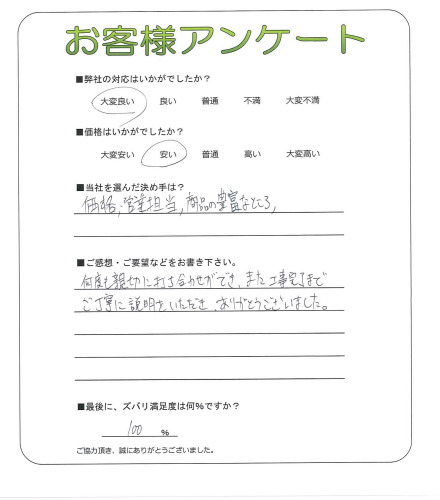 お客様アンケート
■弊社の対応はいかがでしたか？
大変良い 良い 普通 不満 大変不満
■価格はいかがでしたか？
大変安い 安い 普通 高い 大変高い
■当社を選んだ決め手は？
価格,営業担当,商品の豊富なところ,
■ご感想・ご要望などをお書き下さい。
何度も親切に打ち合わせができ、また工事完了まで
ご丁寧に説明をいただき、ありがとうございました。
■最後に、ズバリ満足度は何%ですか？
100 %
ご協力頂き、誠にありがとうございました。